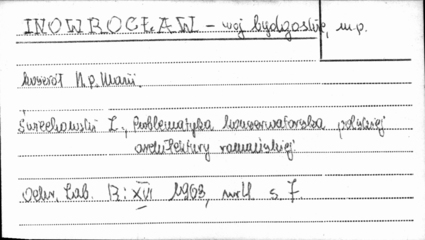 INOWROCŁAW - woj. bydgoskie, m.p.
kościół N.p. Marii.
Świechowski Z., Problematyka konserwatorska polskiej
architektury romańskiej.
Ochr. Zab. R: XVI 1963, nr 4 s. 7.